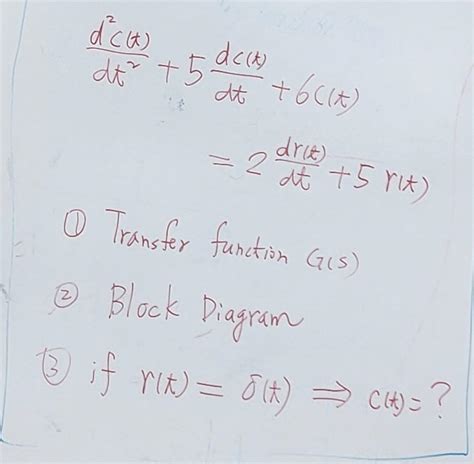 d²c(t)/dt² + 5 dc(t)/dt + 6c(t)
= 2 dr(t)/dt + 5 r(t)
① Transfer function G(s)
② Block Diagram
③ if r(t) = δ(t) ⇒ c(t) = ?